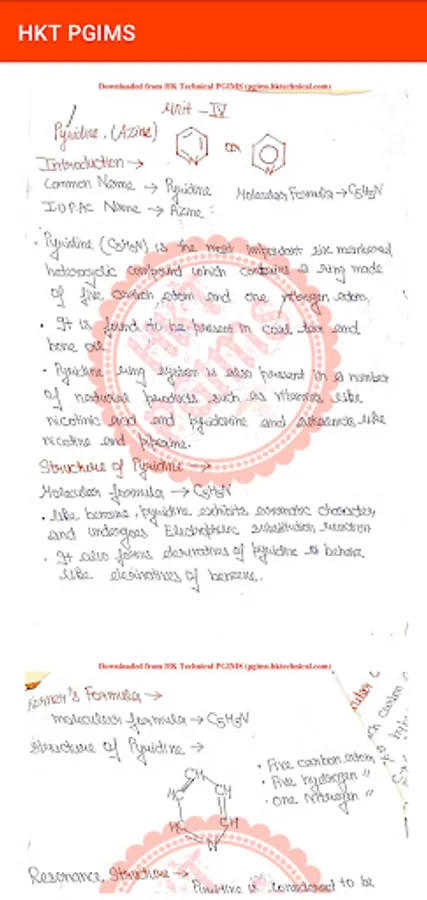 HKT PGIMS
Downloaded from HK Technical PGIMS (pgims.hktechnical.com)
Unit - IV
Pyridine, (Azine)
or
Introduction →
Common Name → Pyridine
Molecular Formula → C5H5N
IUPAC Name → Azine:
• Pyridine (C5H5N) is the most important six membered
heterocyclic compound which contains a ring made
of five carbon atom and one nitrogen atom.
• It is found to be present in coal tar and
bone oil
• Pyridine ring system is also present in a number
of natural products such as vitamins like
nicotinic acid and and alkaloids like
nicotine and
Structure of Pyridine →
Molecular formula → C5H5N
• like benzene, pyridine exhibits aromatic character
and undergoes Electrophilic substitution reaction
• It also forms derivatives of pyridine behave
like derivatives of benzene.
Downloaded from HK Technical PGIMS (pgims.hktechnical.com)
Korner's Formula →
molecular formula → C5H5N
Structure of Pyridine →
• Five carbon atom
• Five hydrogen "
• One Nitrogen "
CH
HC
CH
HC
CH
N
Resonance Structure →
Pyridine is considered to be
HKT
PGIMS